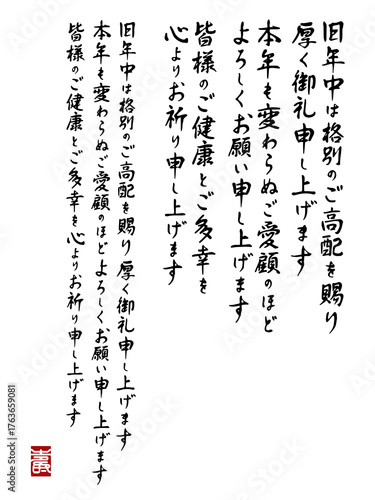 旧年中は格別のご高配を賜り
厚く御礼申し上げます
本年も変わらぬご愛顧のほど
よろしくお願い申し上げます
皆様のご健康とご多幸を
心よりお祈り申し上げます
旧年中は格別のご高配を賜り厚く御礼申し上げます
本年も変わらぬご愛顧のほどよろしくお願い申し上げます
皆様のご健康とご多幸を心よりお祈り申し上げます
Adobe Stock | #1763659081